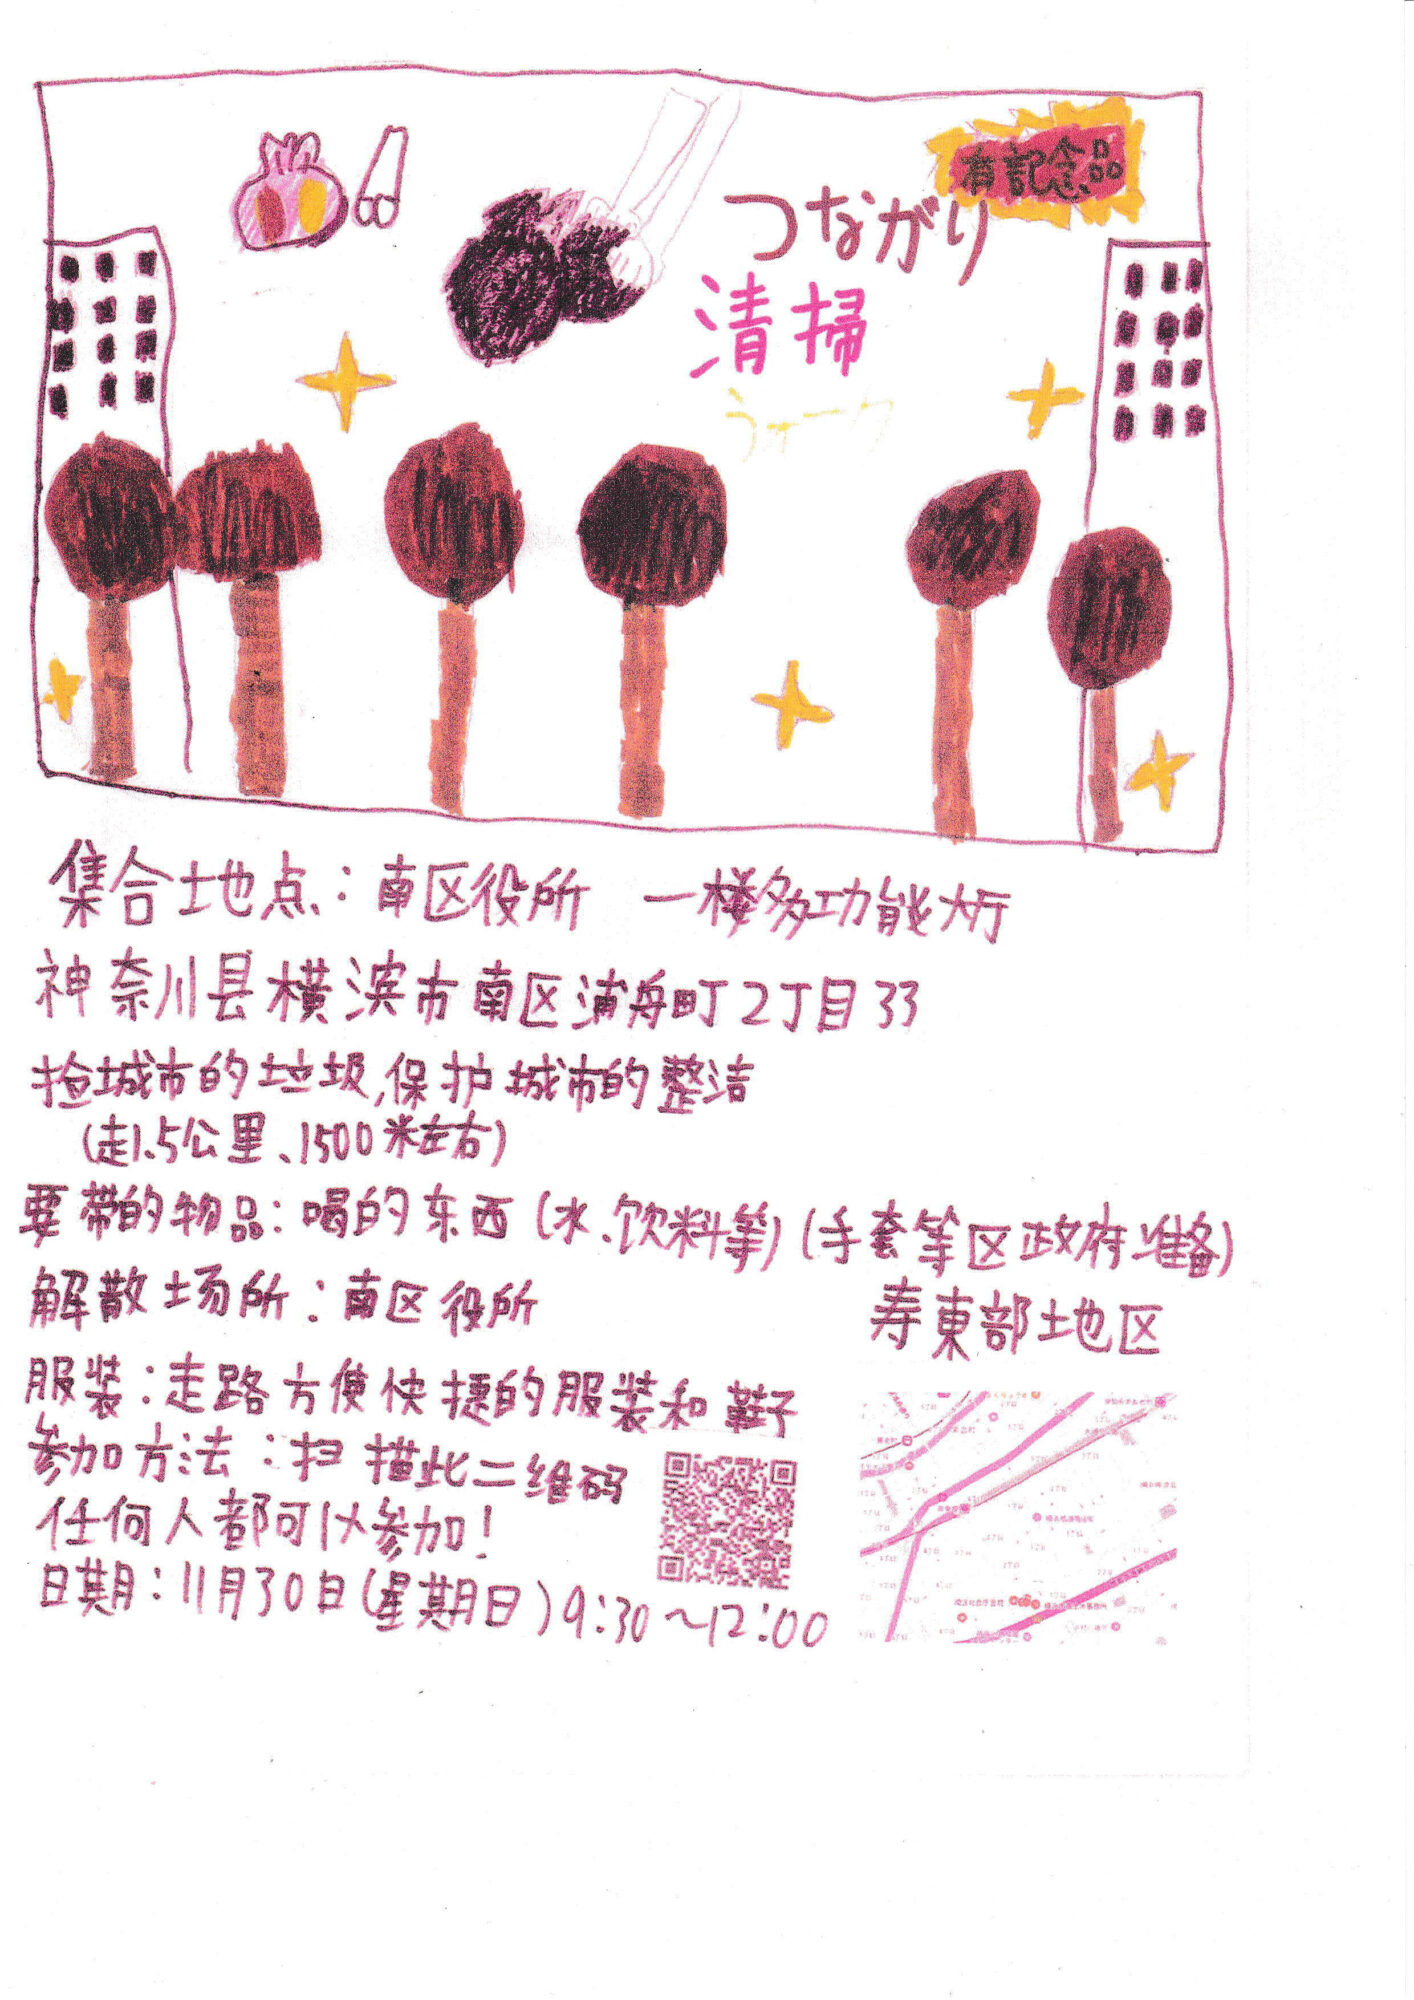 有記念品
つながり
清掃
ウォーク
集合地点：南区役所 一楼多功能大厅
神奈川县横滨市南区浦舟町2丁目33
捡城市的垃圾,保护城市的整洁
(走1.5公里、1500米左右)
要带的物品：喝的东西(水、饮料等)(手套等区政府准备)
解散场所：南区役所
寿東部地区
服装：走路方便快捷的服装和鞋子
参加方法：扫描此二维码
任何人都可以参加!
日期：11月30日(星期日)9:30～12:00